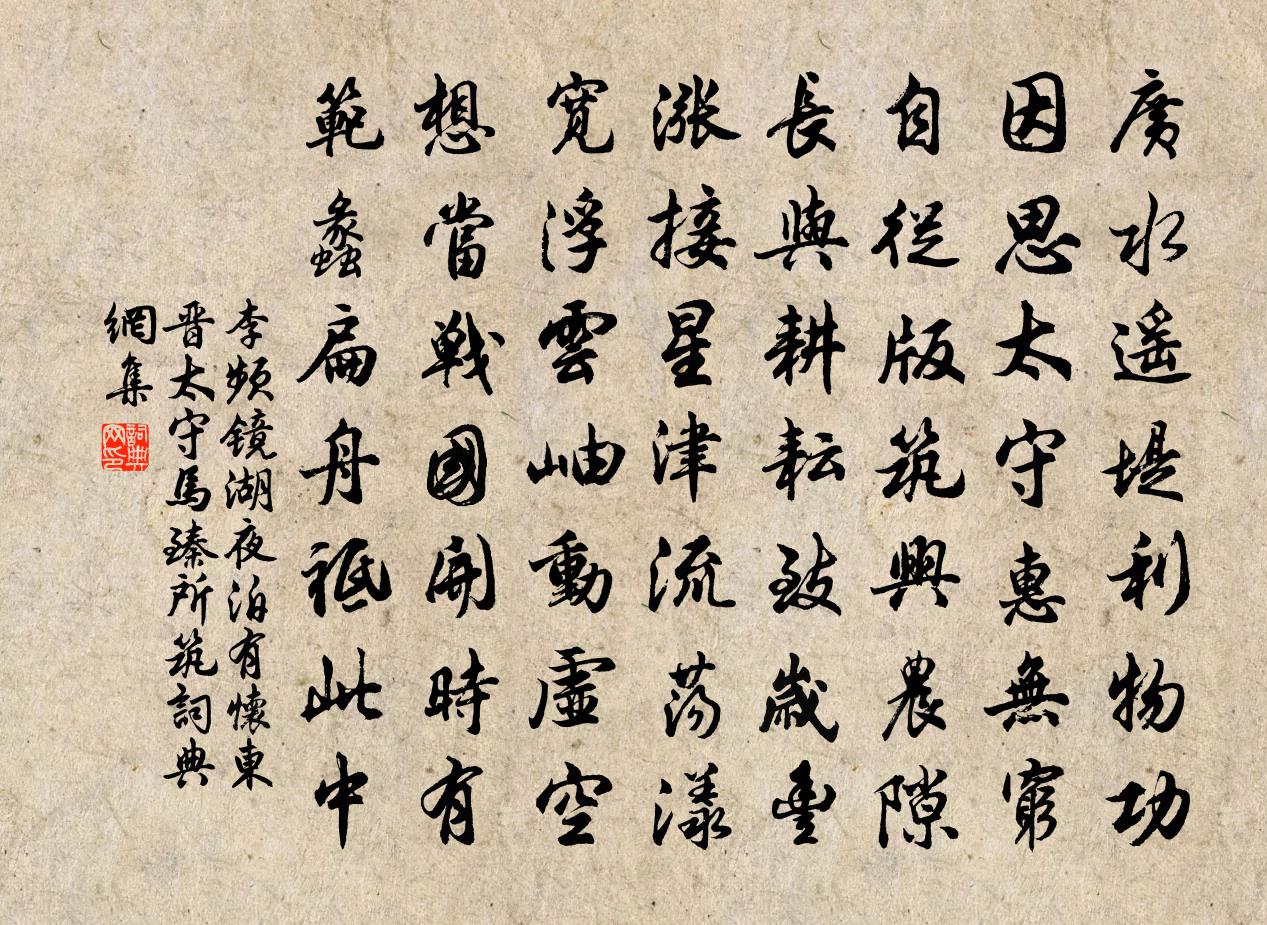 廣水遥堤利物功
因思太守惠無窮
自從版筑興農隙
長與耕耘致歲豐
漲接星津流荡漾
寬浮雲岫動虛空
想當戰國開時有
範蠡扁舟祗此中
李频镜湖夜泊有懷東
晋太守馬臻所筑詞典
網集
詞典
网印